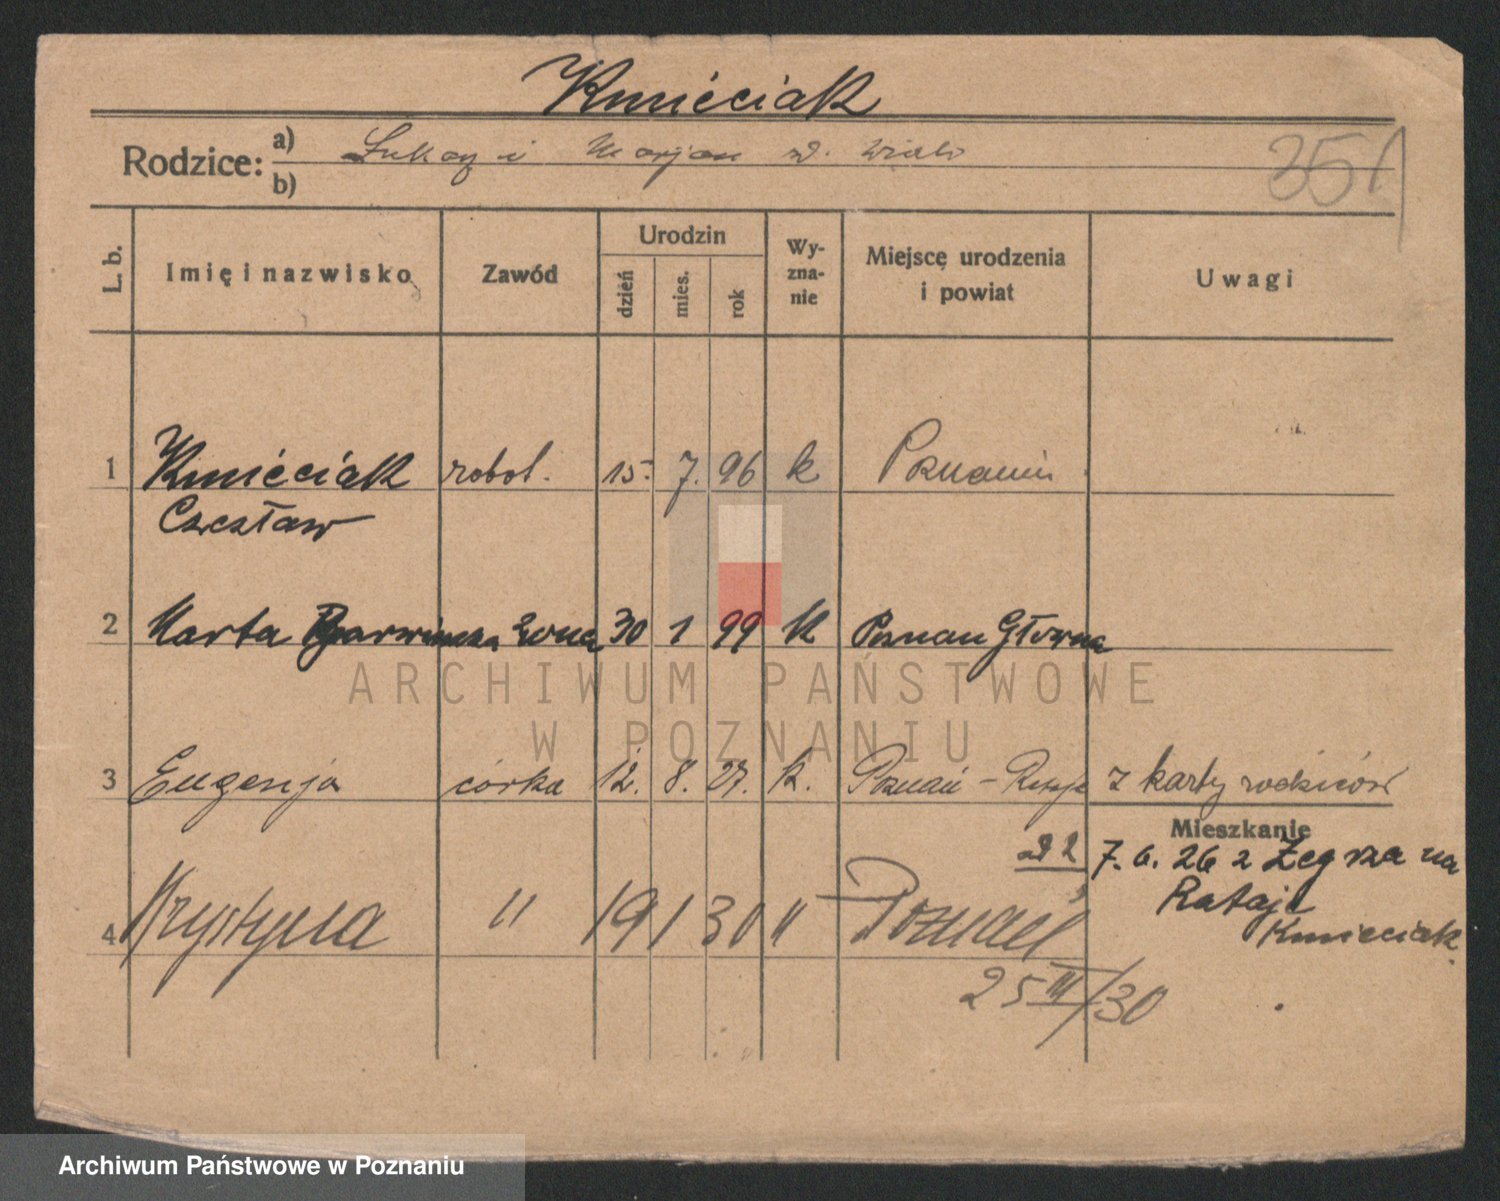 Kmieciak
Rodzice: a) Łukasz i Marjan
351
b)
L. b. Imię i nazwisko Zawód Urodzin dzień mies. rok Wy-zna-nie Miejscę urodzenia i powiat Uwagi
1 Kmieciak robot. 15. 7. 96 k Poznaniu
Czesław
2 Marta żona 30 1 99 k Poznan Główna
3 Eugenja córka 12. 8. 27. k. Poznań - Rataje z karty rodziców
Mieszkanie
7. 6. 26 z Żegrza na
Rataje
Kmieciak
4 Krystyna " 19 1 30 " Poznań
25 III/30
ARCHIWUM PAŃSTWOWE
W POZNANIU
Archiwum Państwowe w Poznaniu